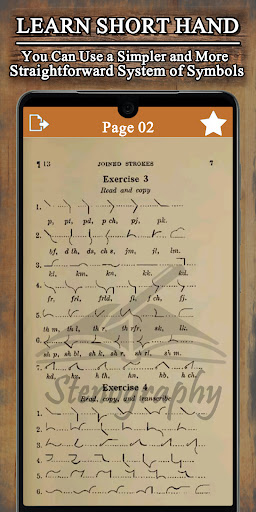 LEARN SHORT HAND
You Can Use a Simpler and More
Straightforward System of Symbols
Page 02
¶ 13 JOINED STROKES 7
Exercise 3
Read and copy
1.
p, pl, pd, p ch, pj, pk.
2.
bf, d th, do, ch s, jm, jl, lm.
3.
kl, km, kn, kk, kd.
4.
fr, frld, f d, fl, fm, fn.
5.
th m, th l, th r, th fk, sk, ll.
6.
sh p, sh bl, sh k, sh rl, sh m.
7.
kd, kn, k th, hn, hb, h ch
Stenography
Exercise 4
Read, copy, and transcribe
1.
2.
3.
4.
5.
6.